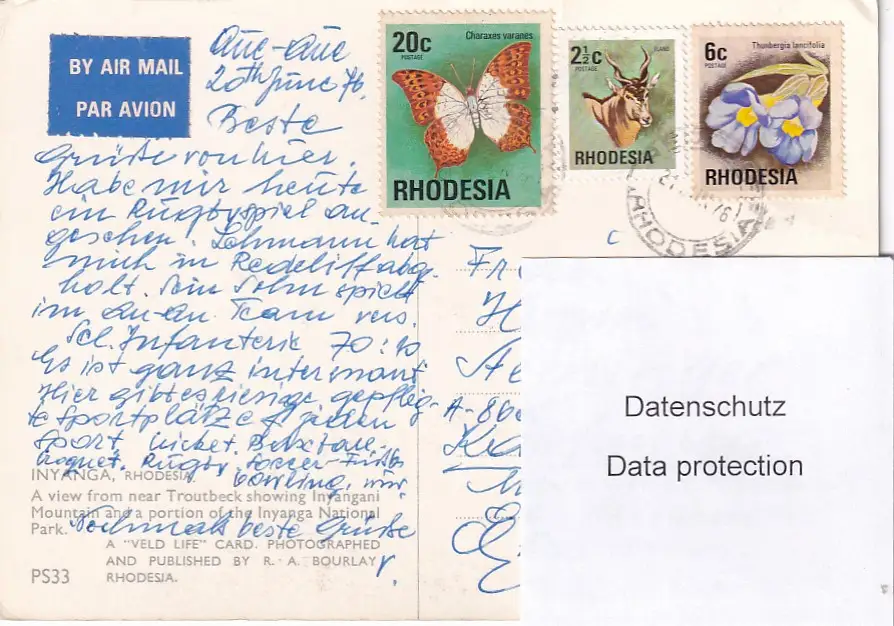 BY AIR MAIL
PAR AVION
Que-Que
20th June 76.
Beste
Grüße von hier.
Habe mir heute
ein Rugbyspiel an-
geschen. Lohmann hat
mich in Redcliff abge-
holt. Sein Sohn spielt
im Team vers.
Infanterie 70:10
Es ist ganz interessant
Hier gibt es riesige gepfleg-
te Sportplätze f. jeden
Sport,
Rugby, Soccer-
bowling,
Nochmals beste Grüße
INYANGA, RHODESIA.
A view from near Troutbeck showing Inyangani
Mountain and a portion of the Inyanga National
Park.
A "VELD LIFE" CARD. PHOTOGRAPHED
AND PUBLISHED BY R. A. BOURLAY
RHODESIA.
PS33
20c
POSTAGE
Charaxes varanes
RHODESIA
2½c
POSTAGE
ELAND
RHODESIA
6c
POSTAGE
Thunbergia lancifolia
RHODESIA
RHODESIA
Fr
H
A-86
Datenschutz
Data protection